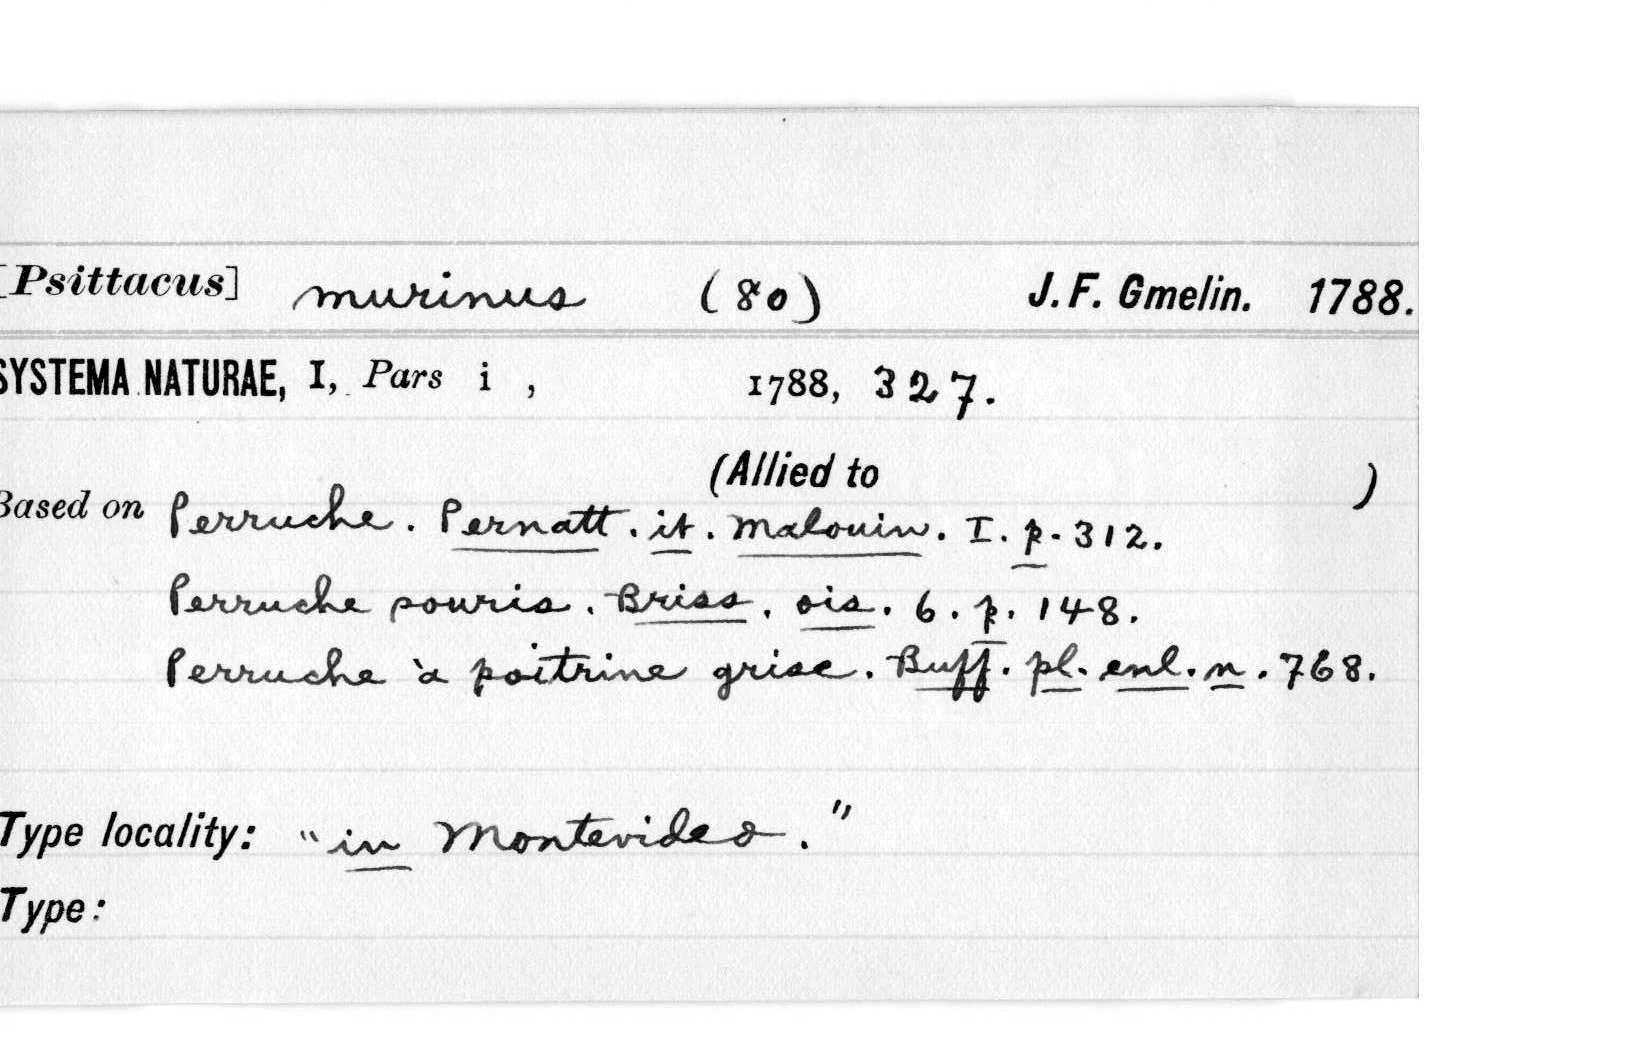 [Psittacus] murinus (80) J. F. Gmelin. 1788.
SYSTEMA NATURAE, I, Pars i , 1788, 327.
(Allied to )
Based on Perruche. Pernatt. it. Malouin. I. p. 312.
Perruche souris. Briss. ois. 6. p. 148.
Perruche à poitrine grise. Buff. pl. enl. n. 768.
Type locality: "in Montevideo."
Type: